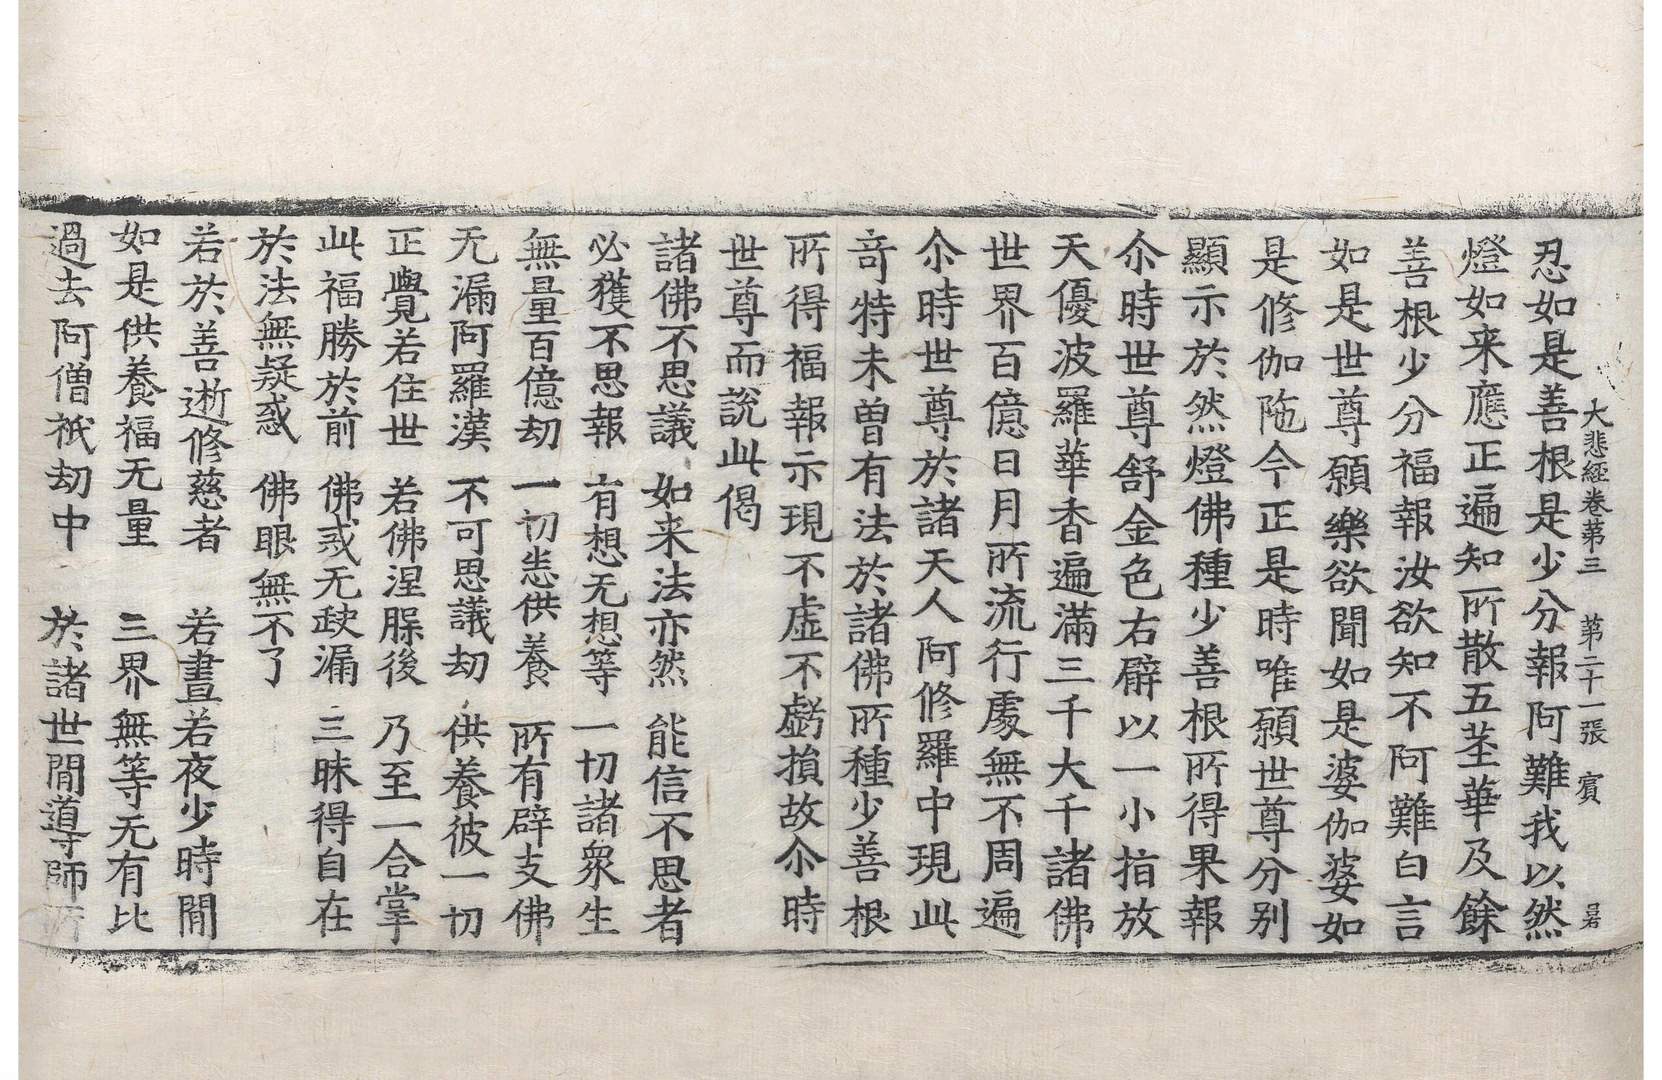 大悲經卷第三　第二十一張　賓
忍如是善根是少分報阿難我以然
燈如来應正遍知所散五莖華及餘
善根少分福報汝欲知不阿難白言
如是世尊願樂欲聞如是婆伽婆如
是修伽陁今正是時唯願世尊分别
顯示於然燈佛種少善根所得果報
尒時世尊舒金色右臂以一小指放
天優波羅華香遍滿三千大千諸佛
世界百億日月所流行處無不周遍
尒時世尊於諸天人阿修羅中現此
竒特未曽有法於諸佛所種少善根
所得福報示現不虛不虧損故尒時
世尊而說此偈
諸佛不思議　如来法亦然　能信不思者
必獲不思報　有想无想等　一切諸衆生
無量百億劫　一切悉供養　所有辟支佛
无漏阿羅漢　不可思議劫　供養彼一切
正覺若住世　若佛涅槃後　乃至一合掌
此福勝於前　佛戒无缺漏　三昧得自在
於法無疑惑　佛眼無不了
若於善逝修慈者　若晝若夜少時間
如是供養福无量　三界無等无有比
過去阿僧祇劫中　於諸世間導師所